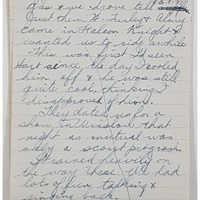 gas & we drove till
Just then W. Finley & Alvry
came in Nelson Knight &
wanted us to ride awhile
This was first I'd seen
Hart since the day I cooled
him off & he was still
quite cool, thinking I
disapproved of him.
They dated us for a
show in Winston that
night as mutual was
only a scout program.
It rained heavily on
the way there. We had
lots of fun talking &
singing back.